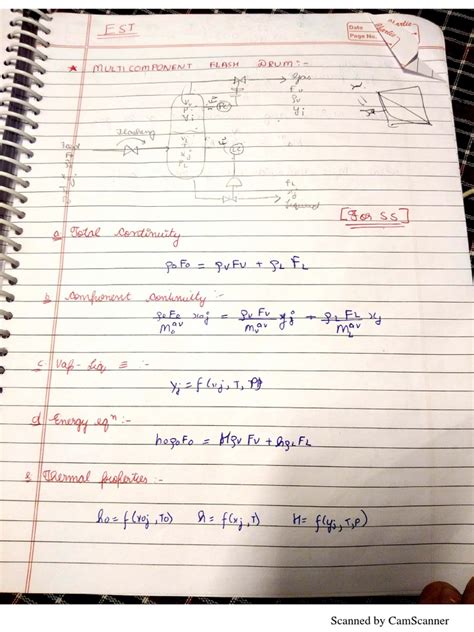 EST
Date
Page No.
★ MULTICOMPONENT FLASH DRUM :-
Gas
Fv
ρv
yj
Flashing
FL
Liquid
[For SS]
a Total continuity
ρ0F0 = ρvFv + ρLFL
b component continuity :-
ρ0F0/m0^av x0j = ρvFv/mv^av yj + ρLFL/mL^av xj
c. Vap-Liq ≡ :-
yj = f(xj, T, P)
d Energy eqn :-
h0ρ0F0 = HρvFv + hρLFL
Thermal properties :-
h0 = f(x0j, T0) h = f(xj, T) H = f(yj, T, P)
Scanned by CamScanner